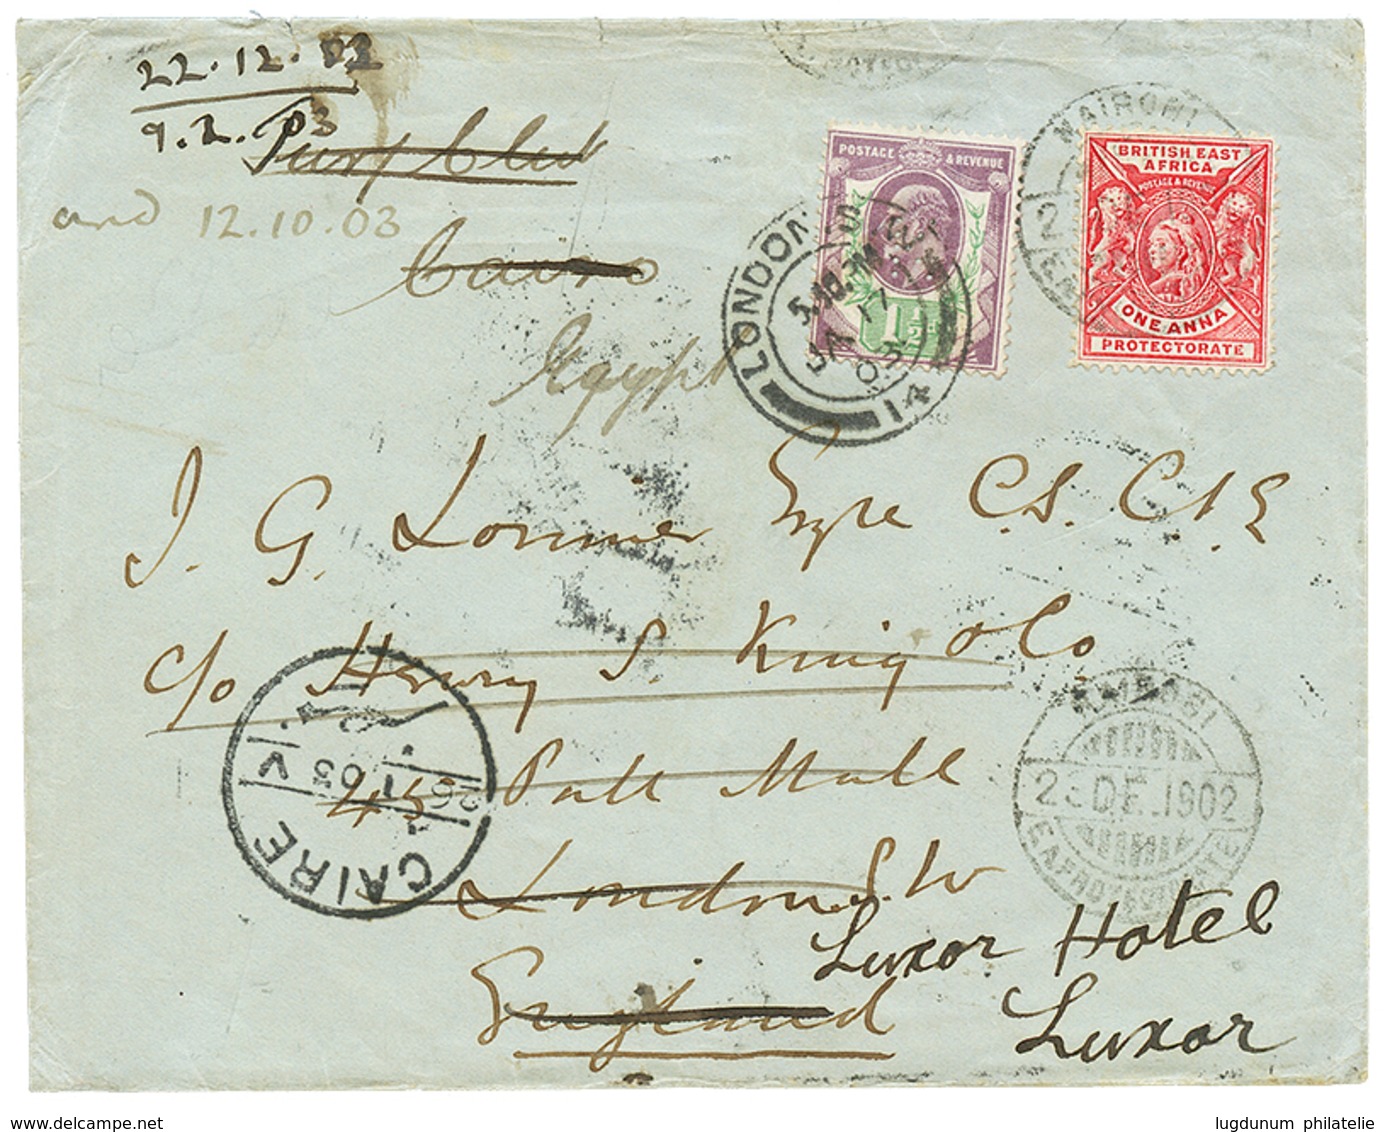 22.12.02
9.2.03
Turf Club
and 12.10.03
Cairo
Egypt
POSTAGE & REVENUE
1½
LONDON S.W.
JA 17
03
14
NAIROBI
BRITISH EAST
AFRICA
POSTAGE & REVENUE
ONE ANNA
PROTECTORATE
J. G. Lorimer Esqre C.S. C.I.E
c/o Henry S. King & Co
45 Pall Mall
London S.W
England
Luxor Hotel
Luxor
CAIRE
26 I 03 V
NAIROBI
23 DE. 1902
E.A. PROTECTORATE
www.delcampe.net
lugdunum philatelie